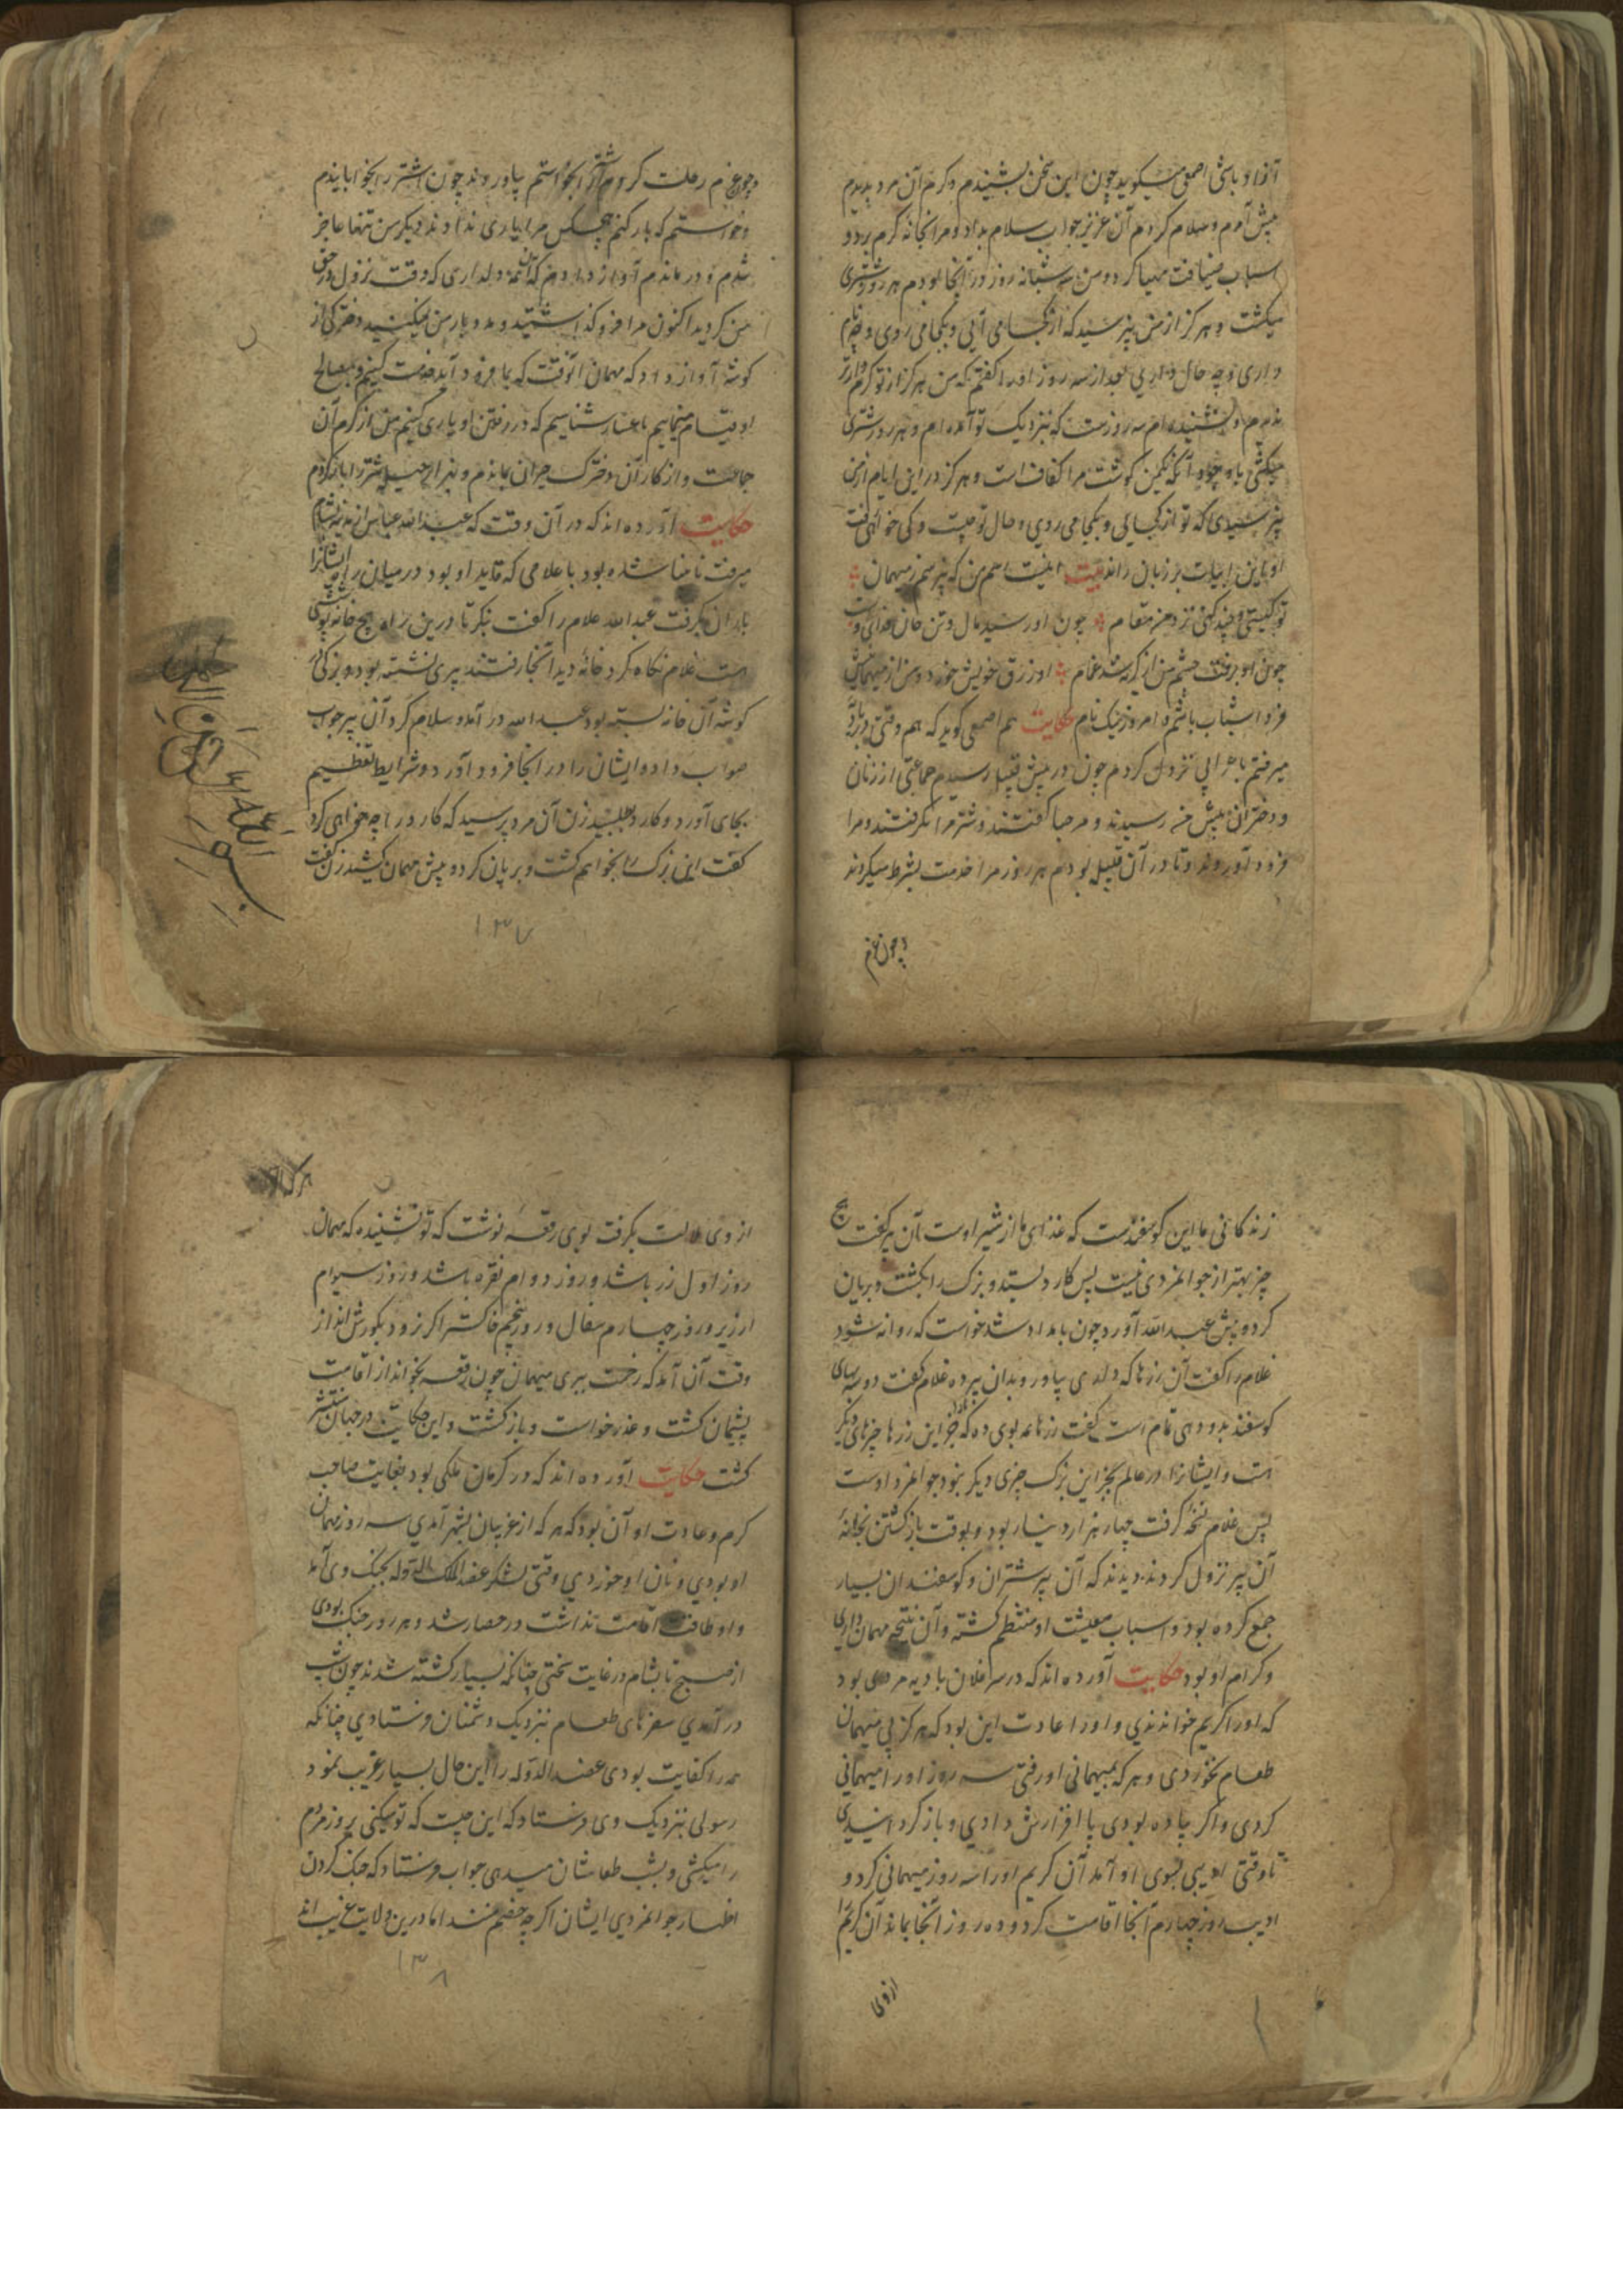 آزاد باشی اصمعی میکوید چون این سخن بشنیدم و کرم آن مرد بدیدم
پیش آمدم و سلام کردم آن عزیز جواب سلام داد و مرا بخانه کرم برد و
اسباب ضیافت مهیا کرد و من سه شبانه روز در آنجا بودم هر روز شتری
میکشت و هرکز از من نپرسید که از کجا می آیی و بکجا می روی و چه نام
داری و چه حال داری بعد از سه روز او را کفتم که من هرکز از تو کریم تر
ندیدم و نشنیده ام سه روزست که بنزدیک تو آمده ام و هر روز شتری
میکشی با وجود آنکه یکمن کوشت مرا کفافست و هرکز در این ایام از من
نپرسیدی که تو از کجایی و بکجا می روی و حال تو چیست و کی خواهی رفت
او این ابیات بر زبان راند بیت اینست اسم من که نپرسم ز میهمان
تو کیستی و چند کنی نزد من مقام چون او رسید مال و تن جان فدای اوست
چون او برفت چشم من از کریه شد غمام او رزق خویش خورد و من از میهمانیش
فردا سپاس باشم و امروز نیک نام حکایت هم اصمعی کوید که هم وقتی در بادیه
میرفتم با هرایی نزول کردم چون در پیش قبیله رسیدم جماعتی از زنان
و دختران پیش من رسیدند و مرحبا کفتند و شتر مرا بکرفتند و مرا
فرود آوردند و تا در آن قبیله بودم هر روز مرا خدمت بشرط میکردند
و چون عزم
و چون عزم رحلت کردم شتر را بخواستم بیاوردند چون اشتر را بخوابانیدم
و خواستم که بار کنم هیچکس مرا یاری ندادند و یکر من تنها عاجز
شدم و در ماندم آواز دادم که آن همه دلداری که وقت نزول در حق
من کردید اکنون مرا فرو کذاشتید و مدد بار من نمیکنید دخترکی از
کوشه آواز داد که مهمان آنوقت که بما فرود آید خدمت کنیم و بمصالح
او قیام نماییم ما عار شناسیم که در رفتن او یاری کنیم من از کرم آن
جماعت و از کار آن دخترک حیران بماندم و بهزار حیله شتر را بار کردم
حکایت آورده اند که در آن وقت که عبد الله عباس از مدینه بشام
میرفت نابینا شده بود با غلامی که قاید او بود در میان راه ایشانرا
باران بکرفت عبد الله غلام را کفت بنکر تا درین راه هیچ خانه بینی
هست غلام نکاه کرد خانه دید آنجا رفتند پیری نشسته بود و بزکی در
کوشه آن خانه بسته بود عبد الله در آمد و سلام کرد آن پیر جواب
صواب داد و ایشان را در انجا فرود آورد و شرایط تعظیم
بجای آورد و کارد طلبید زن آن مرد پرسید که کارد را چه خواهی کرد
کفت این بزک را بخواهم کشت و بریان کرد و پیش مهمان کشید زن کفت
۱۳۷
زندکانی ما این کوسفندست که غذای ما از شیر اوست آن پیر کفت هیچ
چیز بهتر از جوانمردی نیست پس کارد بستد و بزک را بکشت و بریان
کرد و پیش عبد الله آورد چون بامداد شد خواست که روانه شود
غلام را کفت آن زرها که داری بیاور و بدان پیر ده غلام کفت دو سه بهای
کوسفند بدو دهی تمام است کفت زرها همه بوی ده که جز این زرها چیزهای دیکر
هست و ایشانرا در عالم بجز این بزک چیزی دیکر نبود جوانمرد اوست
پس غلام نکه کرفت چهار هزار دینار بود و بوقت باز کشتن بخانه
آن پیر نزول کردند دیدند که آن پیر شتران و کوسفندان بسیار
جمع کرده بود و اسباب معیشت او منتظم کشته و آن نتیجه مهمان داری
و کرام او بود حکایت آورده اند که در سر افلان بادیه مردی بود
که او را کریم خواندندی و او را عادت این بود که هرکز بی میهمان
طعام نخوردی و هر که بمیهمانی او رفتی سه روز او را میهمانی
کردی و اکر پیاده بودی پا افزارش دادی و باز کردانیدی
تا وقتی ادیبی بسوی او آمد آن کریم او را سه روز میهمانی کرد و
ادیب روز چهارم آنجا اقامت کرد و ده روز آنجا بماند آن کریم را
از وی
از وی ملالت بکرفت بوی رقعه نوشت که تو نشنیده که مهمان
روز اول زر باشد و روز دوام نقره باشد و روز سیوام
ارزیر و روز چهارم سفال و روز پنجم خاکستر اکر نزود بکورش انداز
وقت آن آمد که رخت ببری میهمان چون رقعه بخواند از اقامت
پشیمان کشت و عذر خواست و باز کشت و این حکایت در جهان منتشر
کشت حکایت آورده اند که در کرمان ملکی بود بغایت صاحب
کرم و عادت او آن بود که هر که از غریبان بشهر آمدی سه روز مهمان
او بودی و نان او خوردی وقتی لشکر عضد الدوله بجنک وی آمد
و او طاقت اقامت نداشت در حصار شد و هر روز جنک بودی
از صبح تا بشام در غایت سختی چنانکه بسیار کشته شدند چون شب
در آمدی سفرهای طعام نزدیک دشمنان فرستادی چنانکه
همه را کفایت بودی عضد الدوله را این حال بسیار غریب نمود
رسولی بنزدیک وی فرستاد که این چیست که تو میکنی بروز مردم
را میکشی و بشب طعامشان میدهی جواب فرستاد که جنک کردن
اظهار جوانمردی ایشان اکرچه خصم منند اما درین ولایت غریب اند
۱۳۸